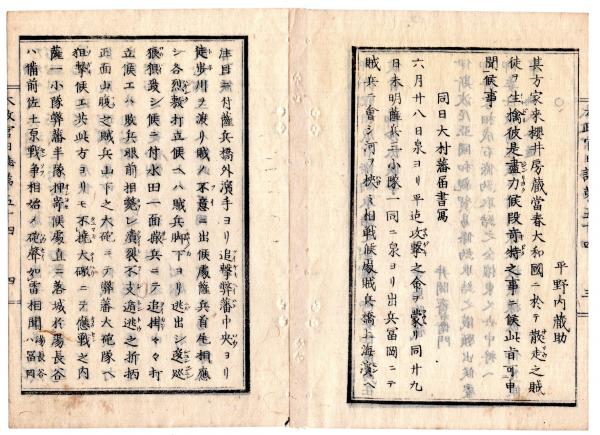 平野内蔵助
其方家来櫻井房蔵當春大和國ニ於テ散走之賊
徒ヲ生擒彼是盡力候段奇特之事ニ候此旨可申
聞候事
同日大村藩届書寫
六月廿八日泉ヨリ平迠攻撃之命ヲ蒙リ同廿九
日未明薩兵二小隊一同ニ泉ヨリ出兵冨岡ニテ
賊兵ニ會シ河ヲ挟ミ相戦候處賊兵橋上海濱ヘ
付薩兵橋外濱手ヨリ追撃弊藩中央ヨリ
徒歩川ヲ渡リ賊ノ不意ニ出候處薩兵首尾相應
シ各烈敷打立候ヘハ賊兵脚下ヨリ逃出シ逡巡
狼狽致シ候ニ付水田一面撒兵ニテ追掛々々打
立候エハ賊兵眼前相斃レ潰裂不支遁逃之折柄
正面山腹之賊兵山下之大砲ニテ弊藩大砲隊ヘ
狙撃候エ共此方ヨリモ不撓大砲ニテ應戦之内
薩一小隊弊藩半隊押寄候處直ニ落城於湯長谷
ハ備前佐土原戦争相始メ砲聲如雷相聞
湯長谷
ハ冨岡
太政官日誌第五十四
四